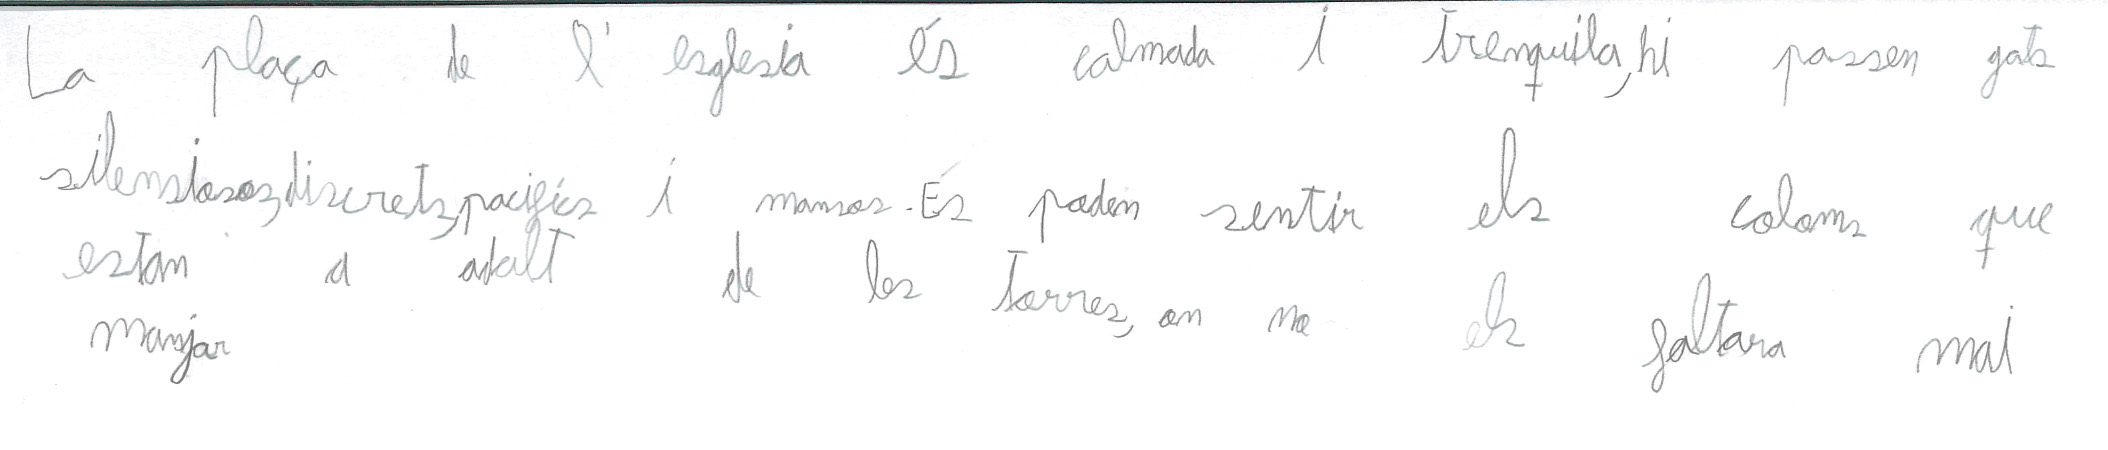 La plaça de l' esglesia és calmada i trenquila, hi passen gats
silensiosos, discrets, pacífics i mansos. És poden sentir els coloms que
estan a adalt de les torres, on no els faltara mai
manjar